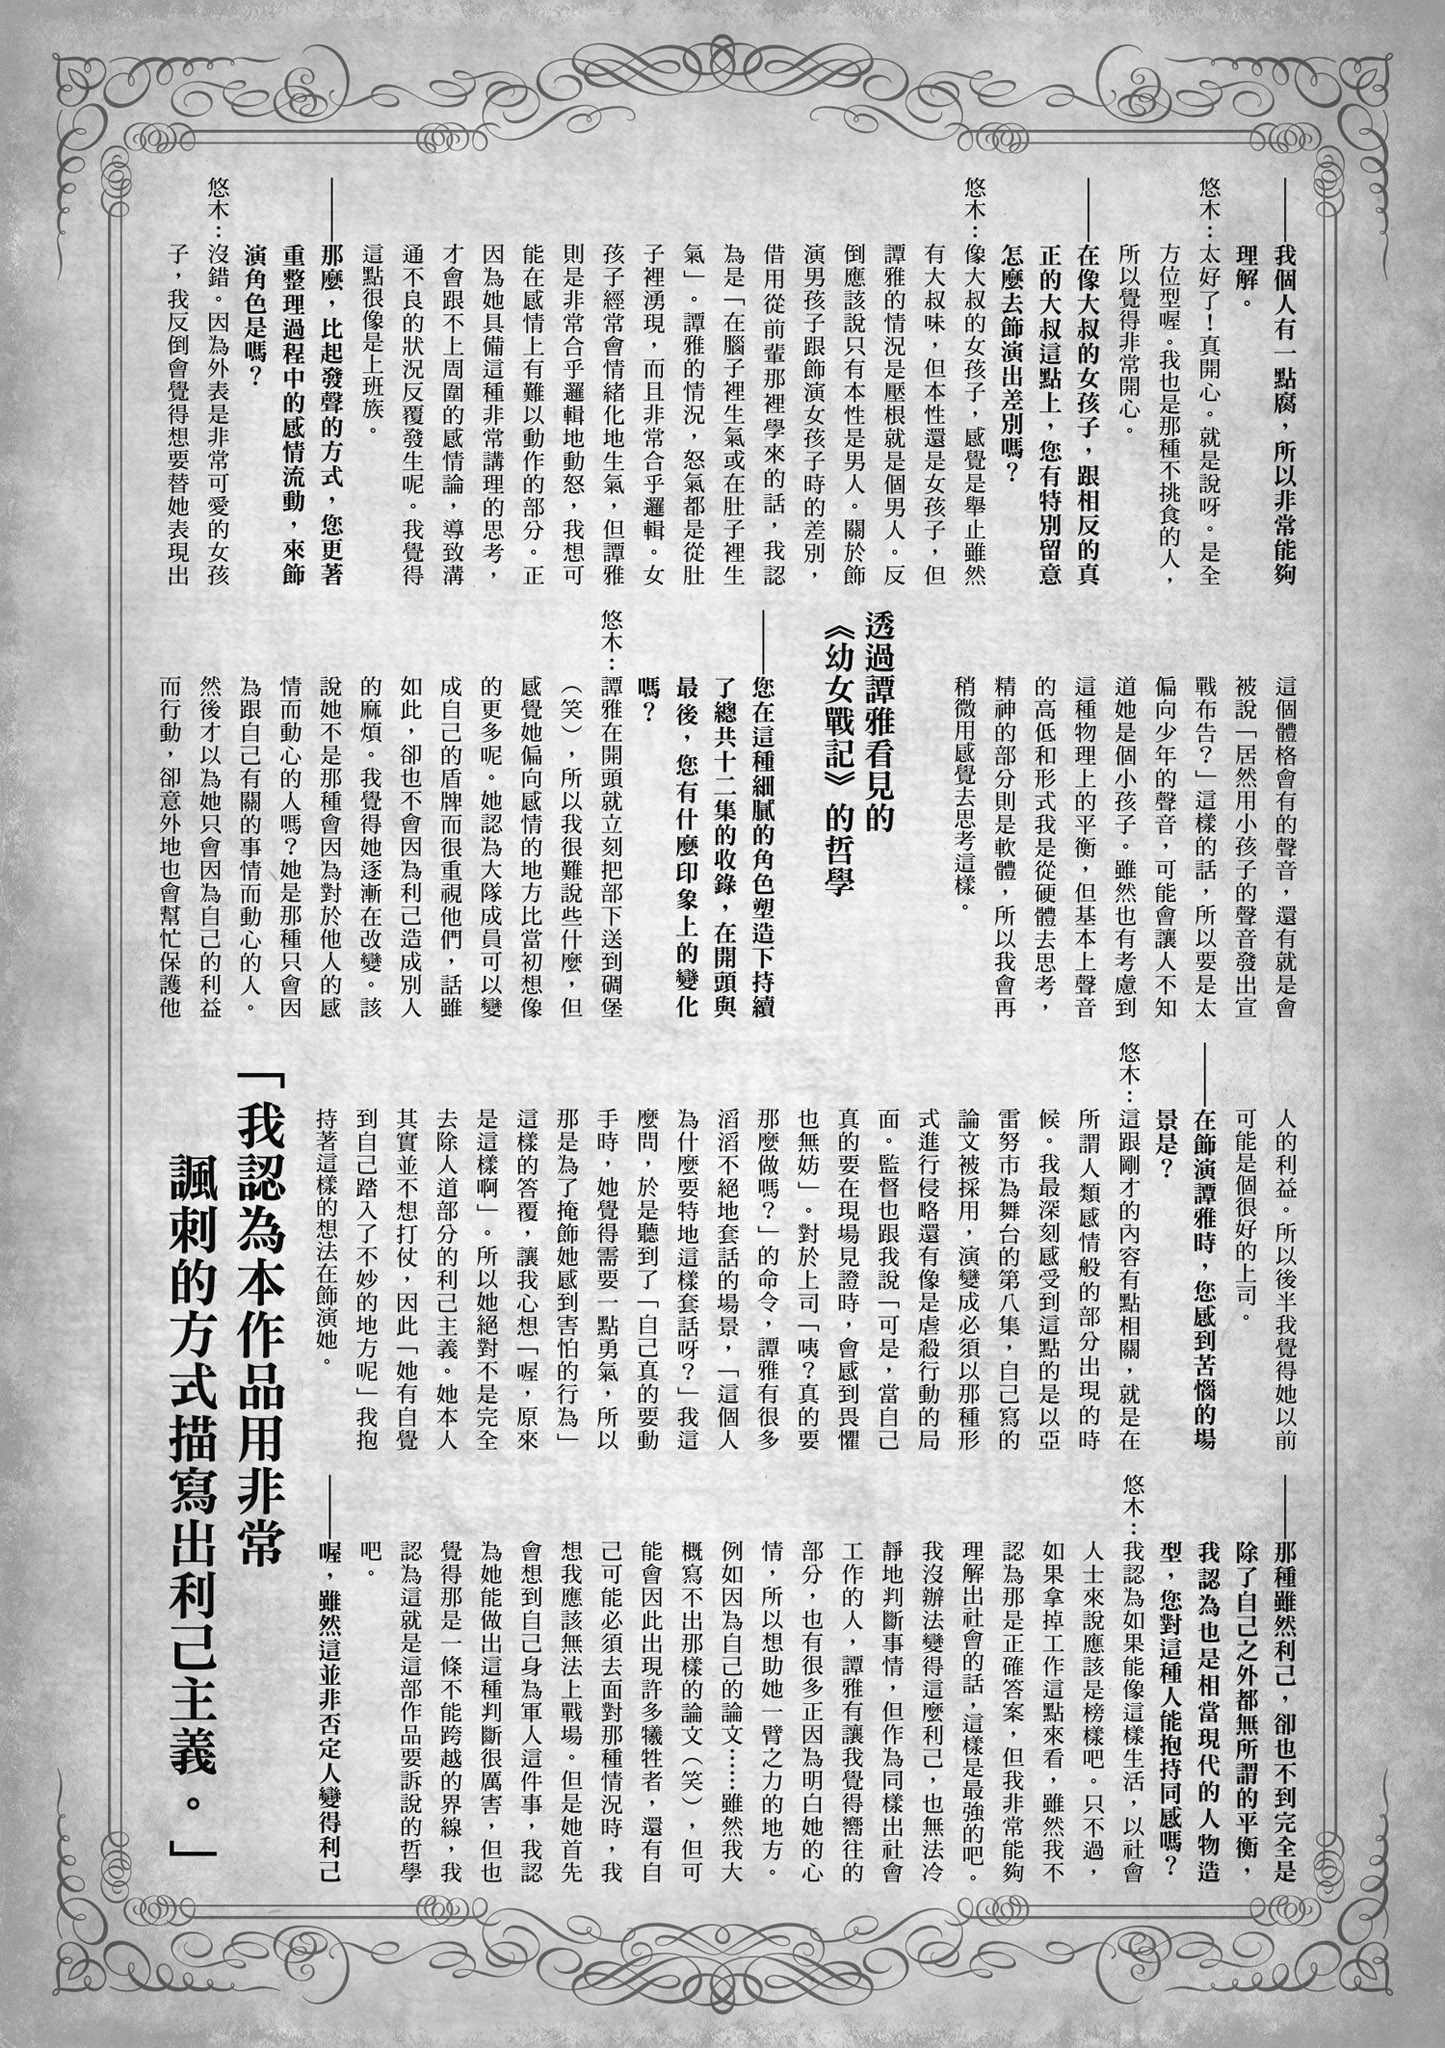 ——我個人有一點腐，所以非常能夠
理解。
悠木：太好了！真開心。就是說呀。是全
方位型喔。我也是那種不挑食的人，
所以覺得非常開心。
——在像大叔的女孩子，跟相反的真
正的大叔這點上，您有特別留意
怎麼去飾演出差別嗎？
悠木：像大叔的女孩子，感覺是舉止雖然
有大叔味，但本性還是女孩子，但
譚雅的情況是壓根就是個男人。反
倒應該說只有本性是男人。關於飾
演男孩子跟飾演女孩子時的差別，
借用從前輩那裡學來的話，我認
為是「在腦子裡生氣或在肚子裡生
氣」。譚雅的情況，怒氣都是從肚
子裡湧現，而且非常合乎邏輯。女
孩子經常會情緒化地生氣，但譚雅
則是非常合乎邏輯地動怒，我想可
能在感情上有難以動作的部分。正
因為她具備這種非常講理的思考，
才會跟不上周圍的感情論，導致溝
通不良的狀況反覆發生呢。我覺得
這點很像是上班族。
——那麼，比起發聲的方式，您更著
重整理過程中的感情流動，來飾
演角色是嗎？
悠木：沒錯。因為外表是非常可愛的女孩
子，我反倒會覺得想要替她表現出
這個體格會有的聲音，還有就是會
被說「居然用小孩子的聲音發出宣
戰布告？」這樣的話，所以要是太
偏向少年的聲音，可能會讓人不知
道她是個小孩子。雖然也有考慮到
這種物理上的平衡，但基本上聲音
的高低和形式我是從硬體去思考，
精神的部分則是軟體，所以我會再
稍微用感覺去思考這樣。
透過譚雅看見的
《幼女戰記》的哲學
——您在這種細膩的角色塑造下持續
了總共十二集的收錄，在開頭與
最後，您有什麼印象上的變化
嗎？
悠木：譚雅在開頭就立刻把部下送到碉堡
（笑），所以我很難說些什麼，但
感覺她偏向感情的地方比當初想像
的更多呢。她認為大隊成員可以變
成自己的盾牌而很重視他們，話雖
如此，卻也不會因為利己造成別人
的麻煩。我覺得她逐漸在改變。該
說她不是那種會因為對於他人的感
情而動心的人嗎？她是那種只會因
為跟自己有關的事情而動心的人。
然後才以為她只會因為自己的利益
而行動，卻意外地也會幫忙保護他
人的利益。所以後半我覺得她以前
可能是個很好的上司。
——在飾演譚雅時，您感到苦惱的場
景是？
悠木：這跟剛才的內容有點相關，就是在
所謂人類感情般的部分出現的時
候。我最深刻感受到這點的是以亞
雷努市為舞台的第八集，自己寫的
論文被採用，演變成必須以那種形
式進行侵略還有像是虐殺行動的局
面。監督也跟我說「可是，當自己
真的要在現場見證時，會感到畏懼
也無妨」。對於上司「咦？真的要
那麼做嗎？」的命令，譚雅有很多
滔滔不絕地套話的場景，「這個人
為什麼要特地這樣套話呀？」我這
麼問，於是聽到了「自己真的要動
手時，她覺得需要一點勇氣，所以
那是為了掩飾她感到害怕的行為」
這樣的答覆，讓我心想「喔，原來
是這樣啊」。所以她絕對不是完全
去除人道部分的利己主義。她本人
其實並不想打仗，因此「她有自覺
到自己踏入了不妙的地方呢」我抱
持著這樣的想法在飾演她。
「我認為本作品用非常
諷刺的方式描寫出利己主義。」
——那種雖然利己，卻也不到完全是
除了自己之外都無所謂的平衡，
我認為也是相當現代的人物造
型，您對這種人能抱持同感嗎？
悠木：我認為如果能像這樣生活，以社會
人士來說應該是榜樣吧。只不過，
如果拿掉工作這點來看，雖然我不
認為那是正確答案，但我非常能夠
理解出社會的話，這樣是最強的吧。
我沒辦法變得這麼利己，也無法冷
靜地判斷事情，但作為同樣出社會
工作的人，譚雅有讓我覺得嚮往的
部分，也有很多正因為明白她的心
情，所以想助她一臂之力的地方。
例如因為自己的論文……雖然我大
概寫不出那樣的論文（笑），但可
能會因此出現許多犧牲者，還有自
己可能必須去面對那種情況時，我
想我應該無法上戰場。但是她首先
會想到自己身為軍人這件事，我認
為她能做出這種判斷很厲害，但也
覺得那是一條不能跨越的界線，我
認為這就是這部作品要訴說的哲學
吧。
——喔，雖然這並非否定人變得利己